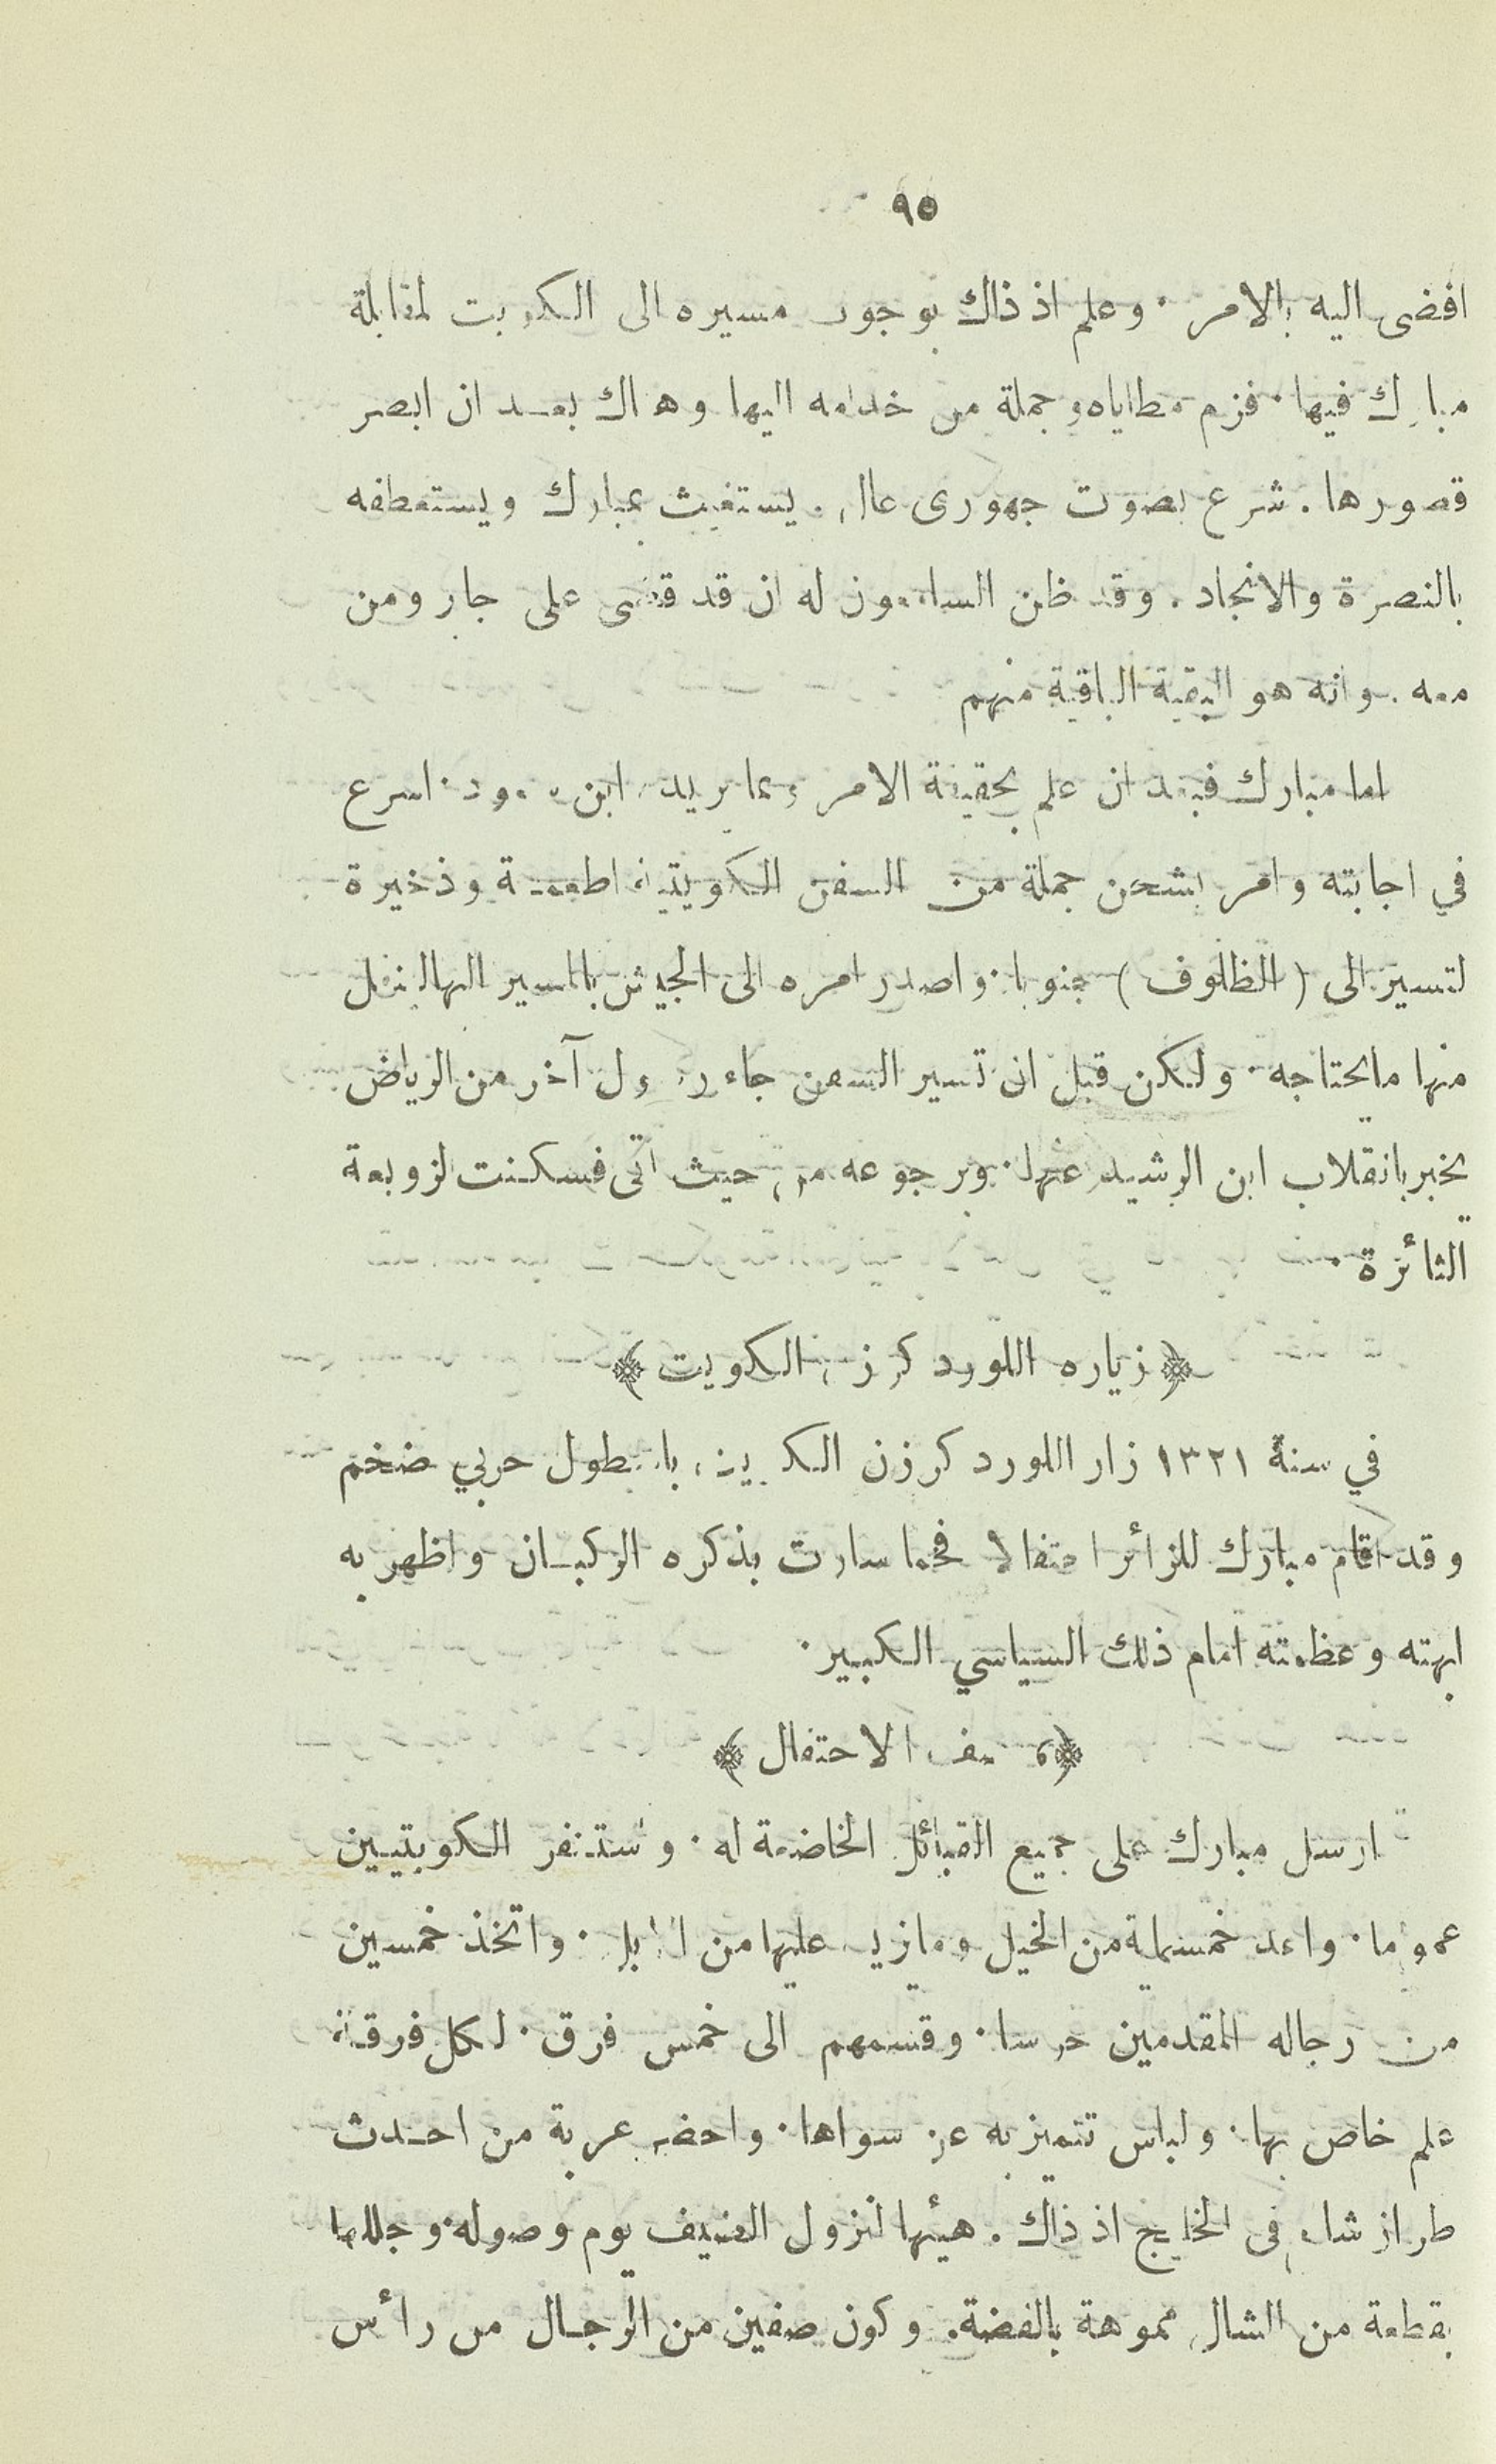 ٩٥
افضى اليه بالامر · وعلم اذ ذاك بوجود مسيره الى الكويت لمقابلة
مبارك فيها · فزم مطاياه وجملة من خدامه اليها وهناك بعد ان ابصر
قصورها . شرع بصوت جهورى عال . يستغيث بمبارك ويستعطفه
بالنصرة والانجاد . وقد ظن السامعون له ان قد قضى على جابر ومن
معه . وانه هو البقية الباقية منهم
اما مبارك فبعد ان علم بحقيقة الامر وبما يريد ابن سعود · اسرع
في اجابته وامر بشحن جملة من السفن الكويتية اطعمة وذخيرة
لتسير الى ( الظلوف ) جنوبا · واصدر امره الى الجيش بالمسير اليها لينقل
منها ما يحتاجه · ولكن قبل ان تسير السفن جاء رسول آخر من الرياض
يخبر بانقلاب ابن الرشيد عنها · وبرجوعه من حيث اتى فسكنت لزوبعة
الثائرة ·
﴿ زياره اللورد كرزن الكويت ﴾
في سنة ١٣٢١ زار اللورد كرزن الكويت باسطول حربي ضخم
وقد اقام مبارك للزائر احتفالا فخما سارت بذكره الركبان واظهر به
ابهته وعظمته امام ذلك السياسي الكبير ·
﴿ وصف الاحتفال ﴾
ارسل مبارك على جميع القبائل الخاضعة له · واستنفر الكويتيين
عموما · واعد خمسماية من الخيل وما يزيد عليها من الابل · واتخذ خمسين
من رجاله المقدمين حرسا · وقسمهم الى خمس فرق · لكل فرقة
علم خاص بها · ولباس تتميز به عن سواها · واحضر عربة من احدث
طراز شاء فى الخليج اذ ذاك . هيئها لنزول الضيف يوم وصوله · وجللها
بقطعة من الشال مموهة بالفضة . وكون صفين من الرجال من رأس